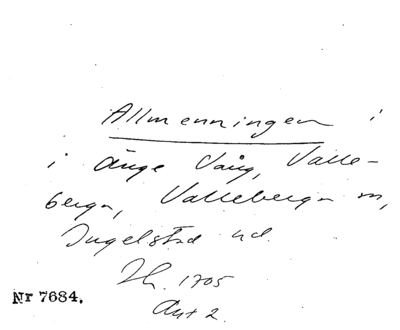 Allmenningen i
i Änge Vång, Valle-
berga, Valleberga sn,
Ingelstad hd.
Lh. 1705
Akt 2.
Nr 7684.